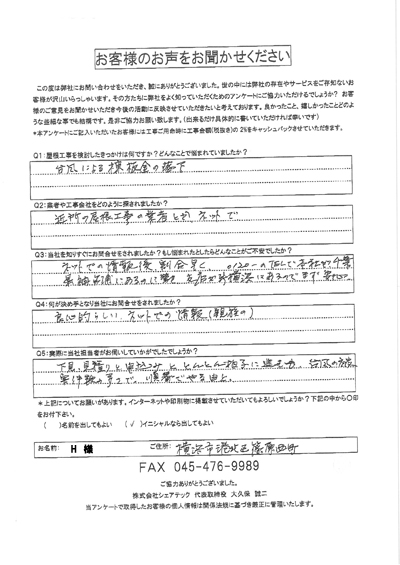 お客様のお声をお聞かせください
この度は弊社にお問い合わせをいただき、誠にありがとうございました。世の中には弊社の存在やサービスをご存知ないお
客様が沢山いらっしゃいます。その方たちに弊社をよく知っていただくためのアンケートにご協力いただけるでしょうか? お客
様のご意見をお聞かせいただき今後の活動に反映させていただきたいと考えております。良かったこと、嬉しかったことどのよ
うな些細な事でも結構です。是非ご協力お願い致します。(出来るだけ具体的に書いていただければ幸いです)
*本アンケートにご記入いただいたお客様には工事ご用命時に工事金額(税抜き)の 2%をキャッシュバックさせていただきます。
Q1:屋根工事を検討したきっかけは何ですか?どんなことで悩まれていましたか?
台風による棟板金の落下
Q2:業者や工事会社をどのように探されましたか?
近所の屋根工事の業者とか ネットで
Q3:当社を知りすぐにお問合せをされましたか?もし悩まれたとしたらどんなことがご不安でしたか?
ネットでの情報
Q4:何が決め手となり当社にお問合せをされましたか?
良心的らしい ネットでの情報
Q5:実際に当社担当者がお伺いしていかがでしたでしょうか?
下見、見積りと
とんとん拍子に
台風の
*上記についてお願いがあります。インターネットや印刷物に掲載させていただいてもよろしいでしょうか?下記の中から〇印
をお付下さい。
( )名前を出してもよい (✓)イニシャルなら出してもよい
お名前: H 様 ご住所: 横浜市港北区篠原西町
FAX 045-476-9989
ご協力ありがとうございました。
株式会社シェアテック 代表取締役 大久保 誠二
当アンケートで取得したお客様の個人情報は関係法規に基づき厳正に管理いたします。